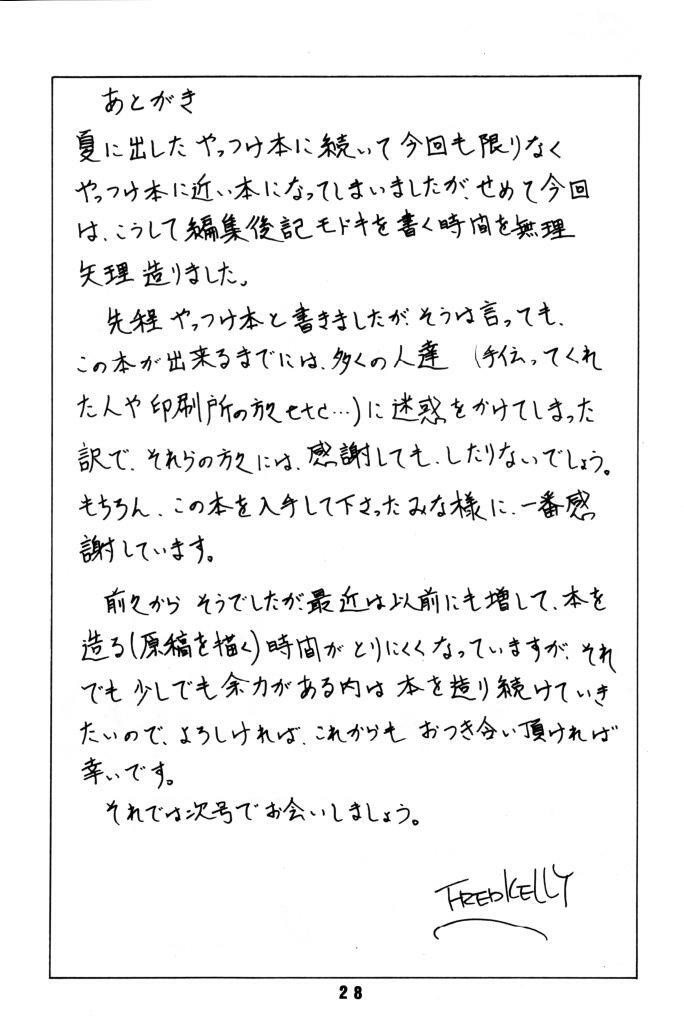 あとがき
夏に出した やっつけ本に続いて今回も限りなく
やっつけ本に近い本になってしまいましたが、せめて今回
は、こうして編集後記モドキを書く時間を無理
矢理 造りました。
先程 やっつけ本と書きましたが、そうは言っても、
この本が出来るまでには、多くの人達 (手伝ってくれ
た人や印刷所の方々etc…)に迷惑をかけてしまった
訳で、それらの方々には、感謝しても、したりないでしょう。
もちろん、この本を入手して下さったみな様に、一番感
謝しています。
前々から そうでしたが、最近は以前にも増して、本を
造る(原稿を描く)時間がとりにくくなっていますが、それ
でも 少しでも余力がある内は 本を造り続けていき
たいので、よろしければ、これからも おつき合い頂ければ
幸いです。
それでは次号でお会いしましょう。
FREDKELLY
28